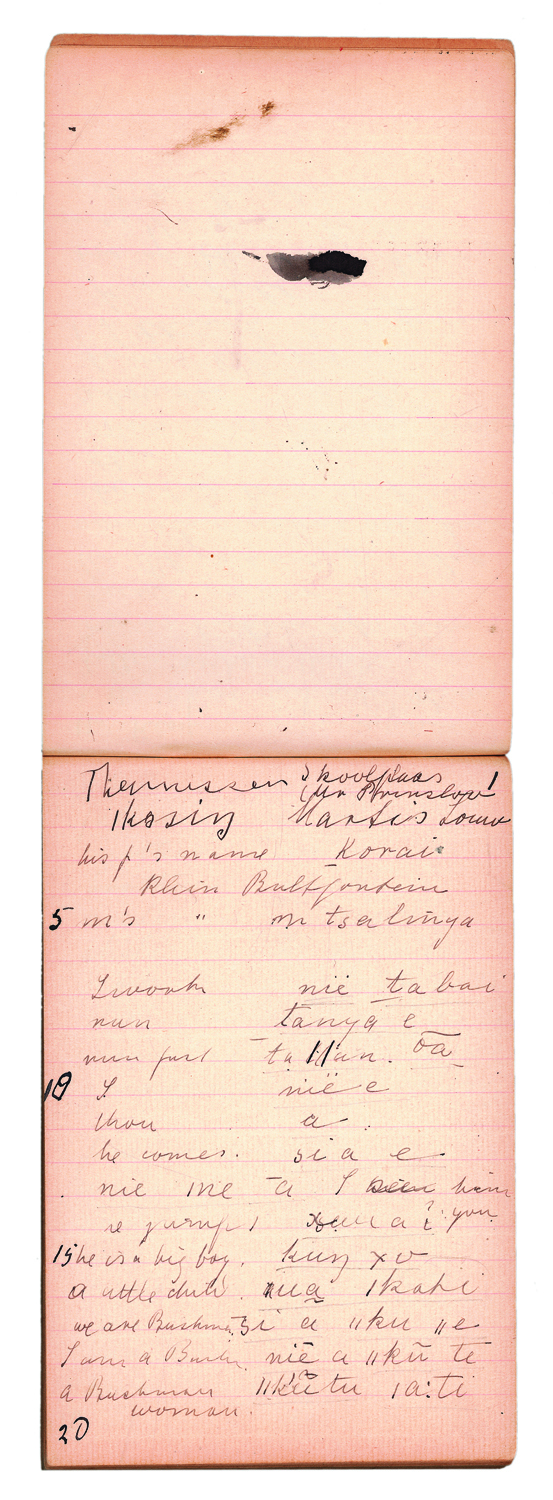 Theunissen Skoolplaas 1
(Mr Prinsloo
ǀkosiŋ Martis Louw
his f's name Korai
Klein Bultfontein
5 m's " m tsalinya
I work nië ta bai
run tanya e
run fast ta ǁan. ōa
10 I nië e
thou a.
he comes. si a e
nie ǀne ā I seen him
he jumps a? you
15 he is a big boy. kuŋ xo
a little child.
we are Bushmen si ā ǁku ǁe
I am a Bushm. niē a ǁkū te
a Bushman tu ǀa:ti
woman.
20